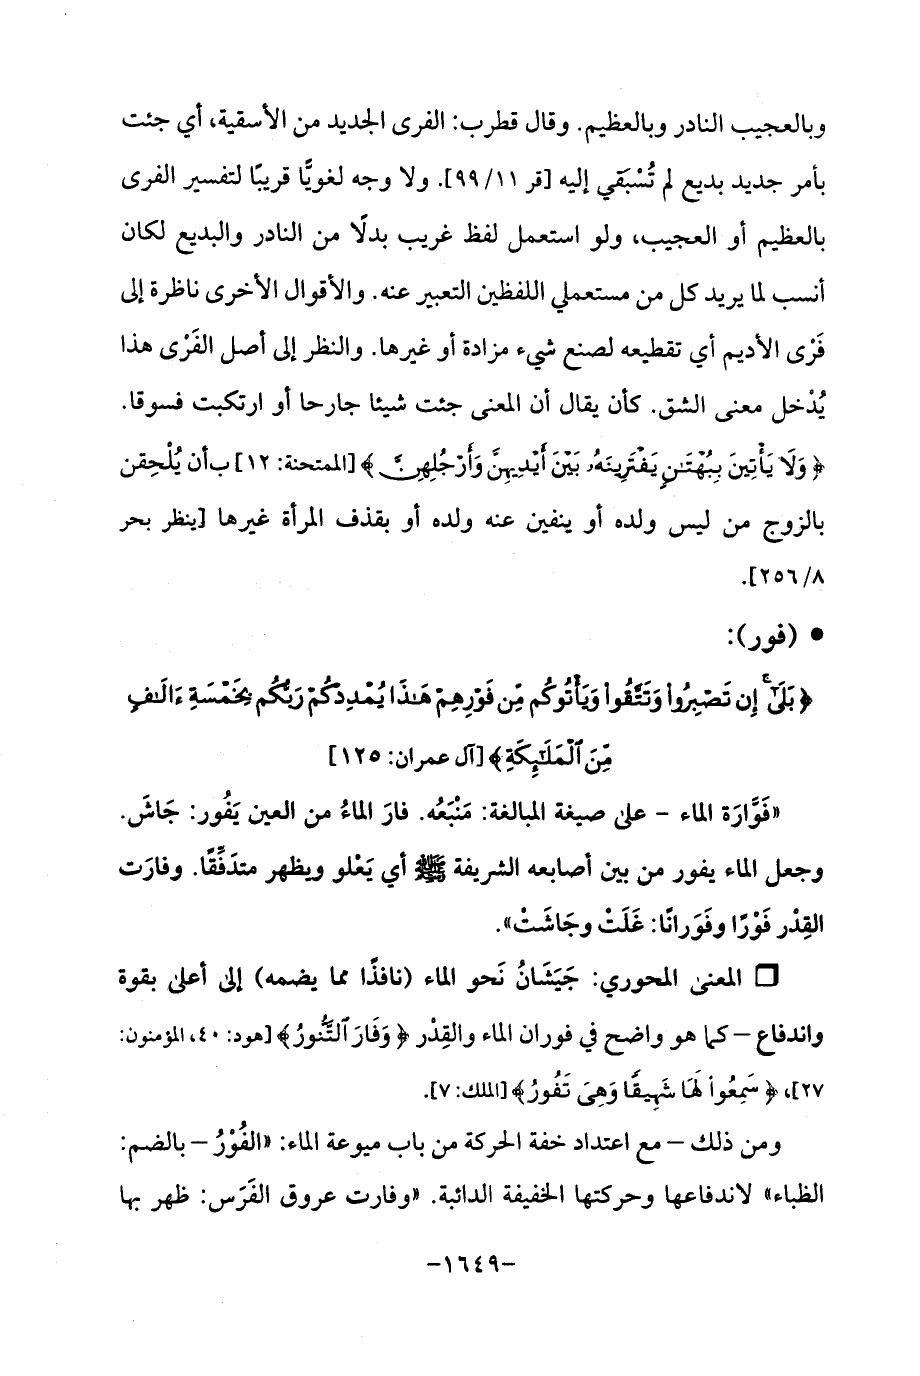 وبالعجيب النادر وبالعظيم. وقال قطرب: الفرى الجديد من الأسقية، أي جئت
بأمر جديد بديع لم تُسْبَقي إليه [قر ١١/ ٩٩]. ولا وجه لغويًّا قريبًا لتفسير الفرى
بالعظيم أو العجيب، ولو استعمل لفظ غريب بدلًا من النادر والبديع لكان
أنسب لما يريد كل من مستعملي اللفظين التعبير عنه. والأقوال الأخرى ناظرة إلى
فَرْى الأديم أي تقطيعه لصنع شيء مزادة أو غيرها. والنظر إلى أصل الفَرْى هذا
يُدْخل معنى الشق. كأن يقال أن المعنى جئت شيئا جارحا أو ارتكبت فسوقا.
﴿ وَلَا يَأْتِينَ بِبُهْتَـٰنٍ يَفْتَرِينَهُۥ بَيْنَ أَيْدِيهِنَّ وَأَرْجُلِهِنَّ ﴾ [الممتحنة: ١٢] ب‍أن يُلْحِقن
بالزوج من ليس ولده أو ينفين عنه ولده أو بقذف المرأة غيرها [ينظر بحر
٨/ ٢٥٦].
• (فور):
﴿ بَلَىٰٓ ۚ إِن تَصْبِرُوا۟ وَتَتَّقُوا۟ وَيَأْتُوكُم مِّن فَوْرِهِمْ هَـٰذَا يُمْدِدْكُمْ رَبُّكُم بِخَمْسَةِ ءَالَـٰفٍ
مِّنَ ٱلْمَلَـٰٓئِكَةِ ﴾ [آل عمران: ١٢٥]
«فَوَّارَة الماء - على صيغة المبالغة: مَنْبَعُه. فارَ الماءُ من العين يَفُور: جَاشَ.
وجعل الماء يفور من بين أصابعه الشريفة ﷺ أي يَعْلو ويظهر متدَفِّقًا. وفارَت
القِدْر فَوْرًا وفَوَرانًا: غَلَتْ وجَاشَتْ».
□ المعنى المحوري: جَيَشَانُ نَحو الماء (نافذًا مما يضمه) إلى أعلى بقوة
واندفاع – كما هو واضح في فوران الماء والقِدْر ﴿ وَفَارَ ٱلتَّنُّورُ ﴾ [هود: ٤٠، المؤمنون:
٢٧]، ﴿ سَمِعُوا۟ لَهَا شَهِيقًا وَهِىَ تَفُورُ ﴾ [الملك: ٧].
ومن ذلك – مع اعتداد خفة الحركة من باب ميوعة الماء: «الفُوْرُ – بالضم:
الظباء» لاندفاعها وحركتها الخفيفة الدائبة. «وفارت عروق الفَرَس: ظهر بها
-١٦٤٩-